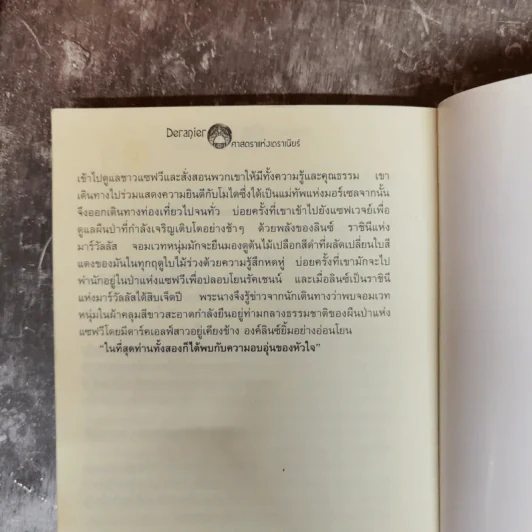 Deranier
ศาสตราแห่งเดราเนียร์
เข้าไปดูแลชาวแซฟวีและสั่งสอนพวกเขาให้มีทั้งความรู้และคุณธรรม เขา
เดินทางไปร่วมแสดงความยินดีกับโมไดซึ่งได้เป็นแม่ทัพแห่งมอร์เซลจากนั้น
จึงออกเดินทางท่องเที่ยวไปจนทั่ว บ่อยครั้งที่เขาเข้าไปยังแซฟเวจย์เพื่อ
ดูแลผืนป่าที่กำลังเจริญเติบโตอย่างช้าๆ ด้วยพลังของลินซ์ ราชินีแห่ง
มาร์วัลลัส จอมเวทหนุ่มมักจะยืนมองดูต้นไม้เปลือกสีดำที่ผลัดเปลี่ยนใบสี
แดงของมันในทุกฤดูใบไม้ร่วงด้วยความรู้สึกหดหู่ บ่อยครั้งที่เขามักจะไป
พำนักอยู่ในป่าแห่งแซฟวีเพื่อปลอบโยนรัคเชนน์ และเมื่อลินซ์เป็นราชินี
แห่งมาร์วัลลัสได้สิบเจ็ดปี พระนางจึงรู้ข่าวจากนักเดินทางว่าพบจอมเวท
หนุ่มในผ้าคลุมสีขาวสะอาดกำลังยืนอยู่ท่ามกลางธรรมชาติของผืนป่าแห่ง
แซฟวีโดยมีดาร์คเอลฟ์สาวอยู่เคียงข้าง องค์ลินซ์ยิ้มอย่างอ่อนโยน
“ในที่สุดท่านทั้งสองก็ได้พบกับความอบอุ่นของหัวใจ”